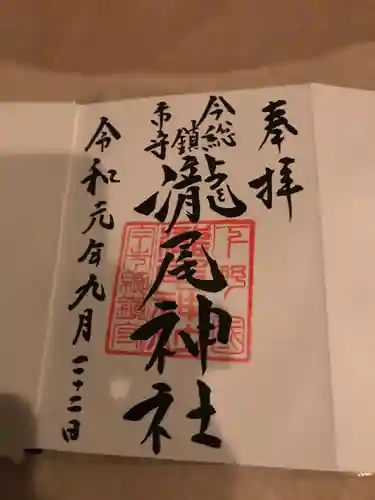 奉拝
今市総鎮守
瀧尾神社
令和元年九月二十二日
下野国